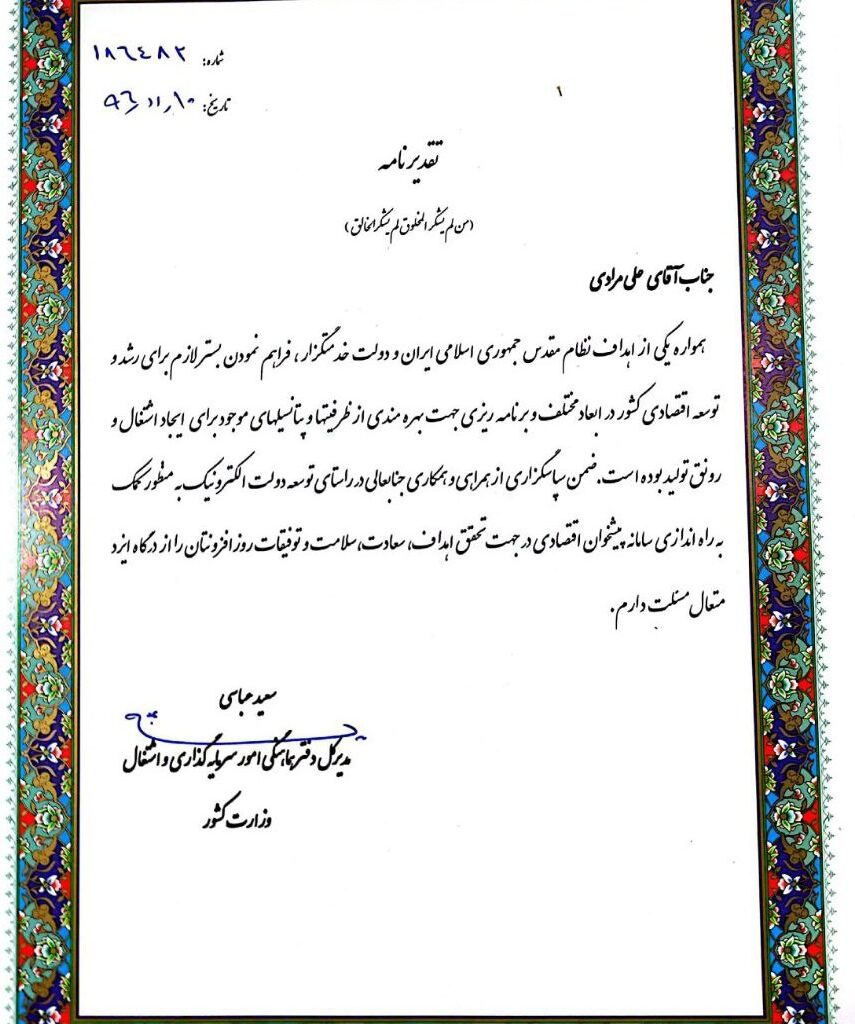 شماره: ۱۸۶۴۸۲
تاریخ: ۹۶/۱۱/۱۰
تقدیرنامه
(من لم یشکر المخلوق لم یشکر الخالق)
جناب آقای علی مرادی
همواره یکی از اهداف نظام مقدس جمهوری اسلامی ایران و دولت خدمتگزار، فراهم نمودن بستر لازم برای رشد و
توسعه اقتصادی کشور در ابعاد مختلف و برنامه ریزی جهت بهره مندی از ظرفیتها و پتانسیلهای موجود برای ایجاد اشتغال و
رونق تولید بوده است. ضمن سپاسگزاری از همراهی و همکاری جنابعالی در راستای توسعه دولت الکترونیک به منظور کمک
به راه اندازی سامانه پیشخوان اقتصادی در جهت تحقق اهداف، سعادت، سلامت و توفیقات روز افزونتان را از درگاه ایزد
متعال مسئلت دارم.
سعید عباسی
مدیرکل دفتر هماهنگی امور سرمایه گذاری و اشتغال
وزارت کشور